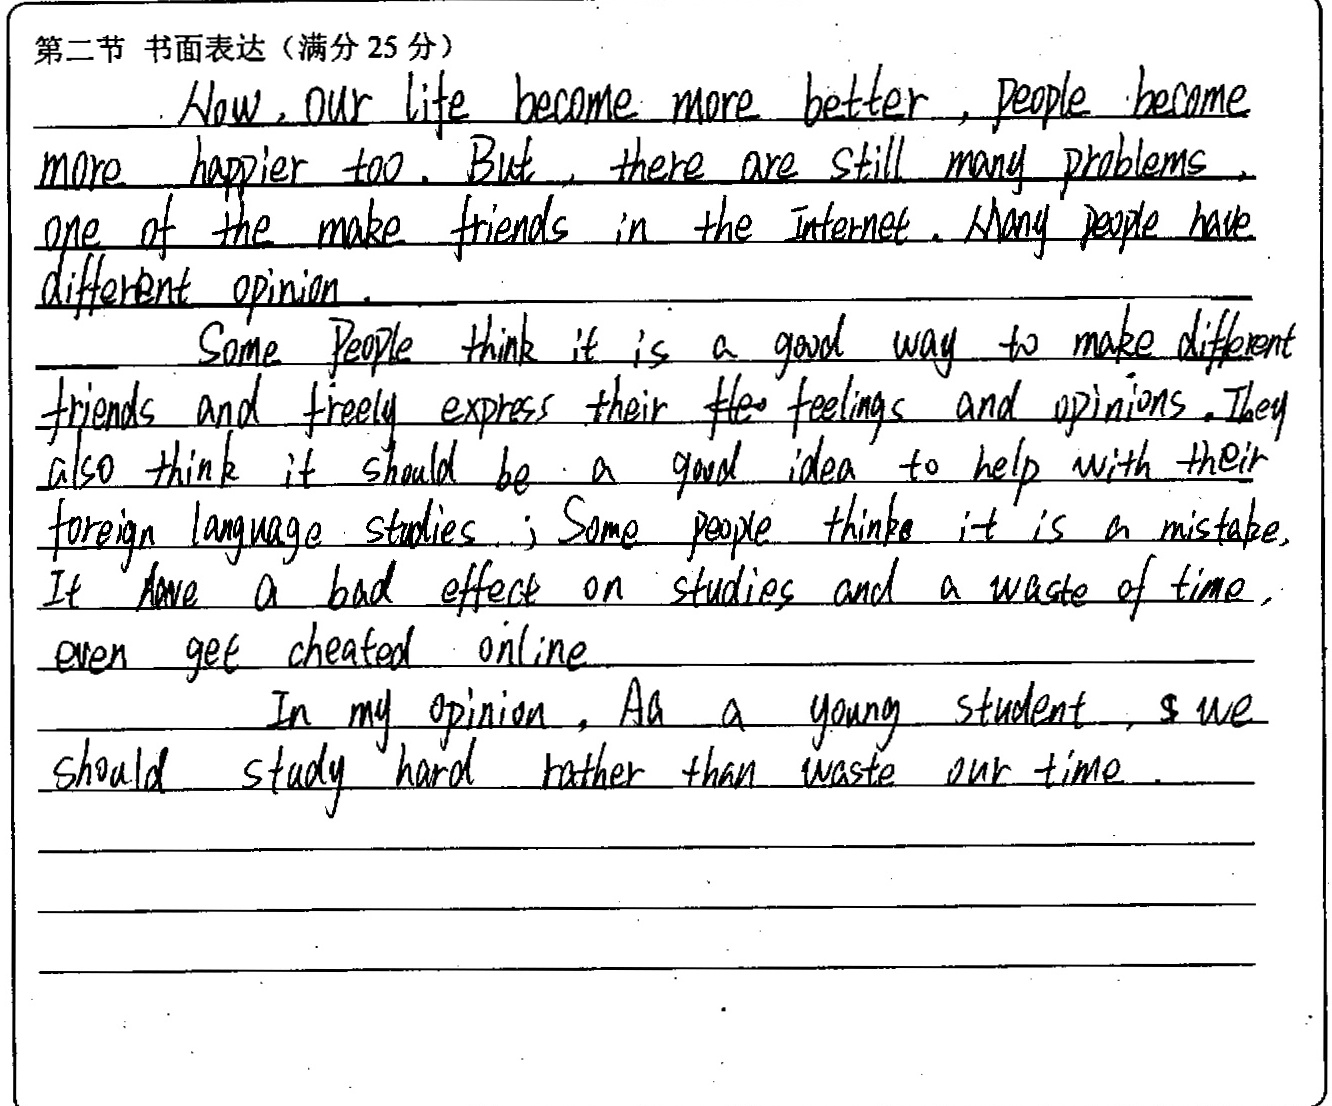 第二节 书面表达（满分 25 分）
Now, our life become more better, people become
more happier too. But, there are still many problems,
one of the make friends in the Internet. Many people have
different opinion.
Some People think it is a good way to make different
friends and freely express their feelings and opinions. They
also think it should be a good idea to help with their
foreign language studies; Some people thinks it is a mistake,
It have a bad effect on studies and a waste of time,
even get cheated online
In my opinion, Aa a young student, we
should study hard rather than waste our time.